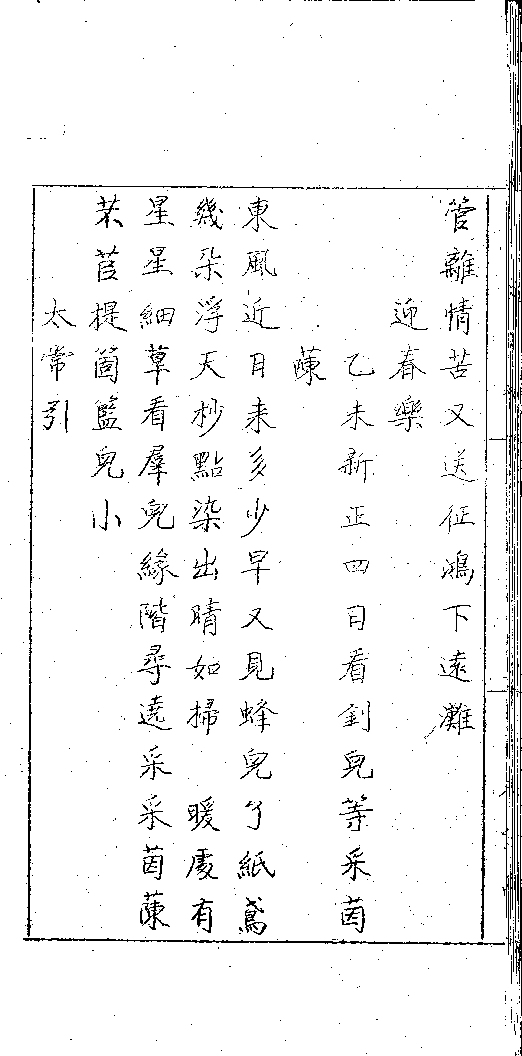 管離情苦又送征鴻下遠灘
迎春樂
乙未新正四日看釗兒等采茵
蔯
東風近日来多少早又見蜂兒了紙鳶
幾朵浮天杪點染出晴如掃　暖處有
星星細草看羣兒緣階尋遶采采茵蔯
芣苢提箇籃兒小
太常引